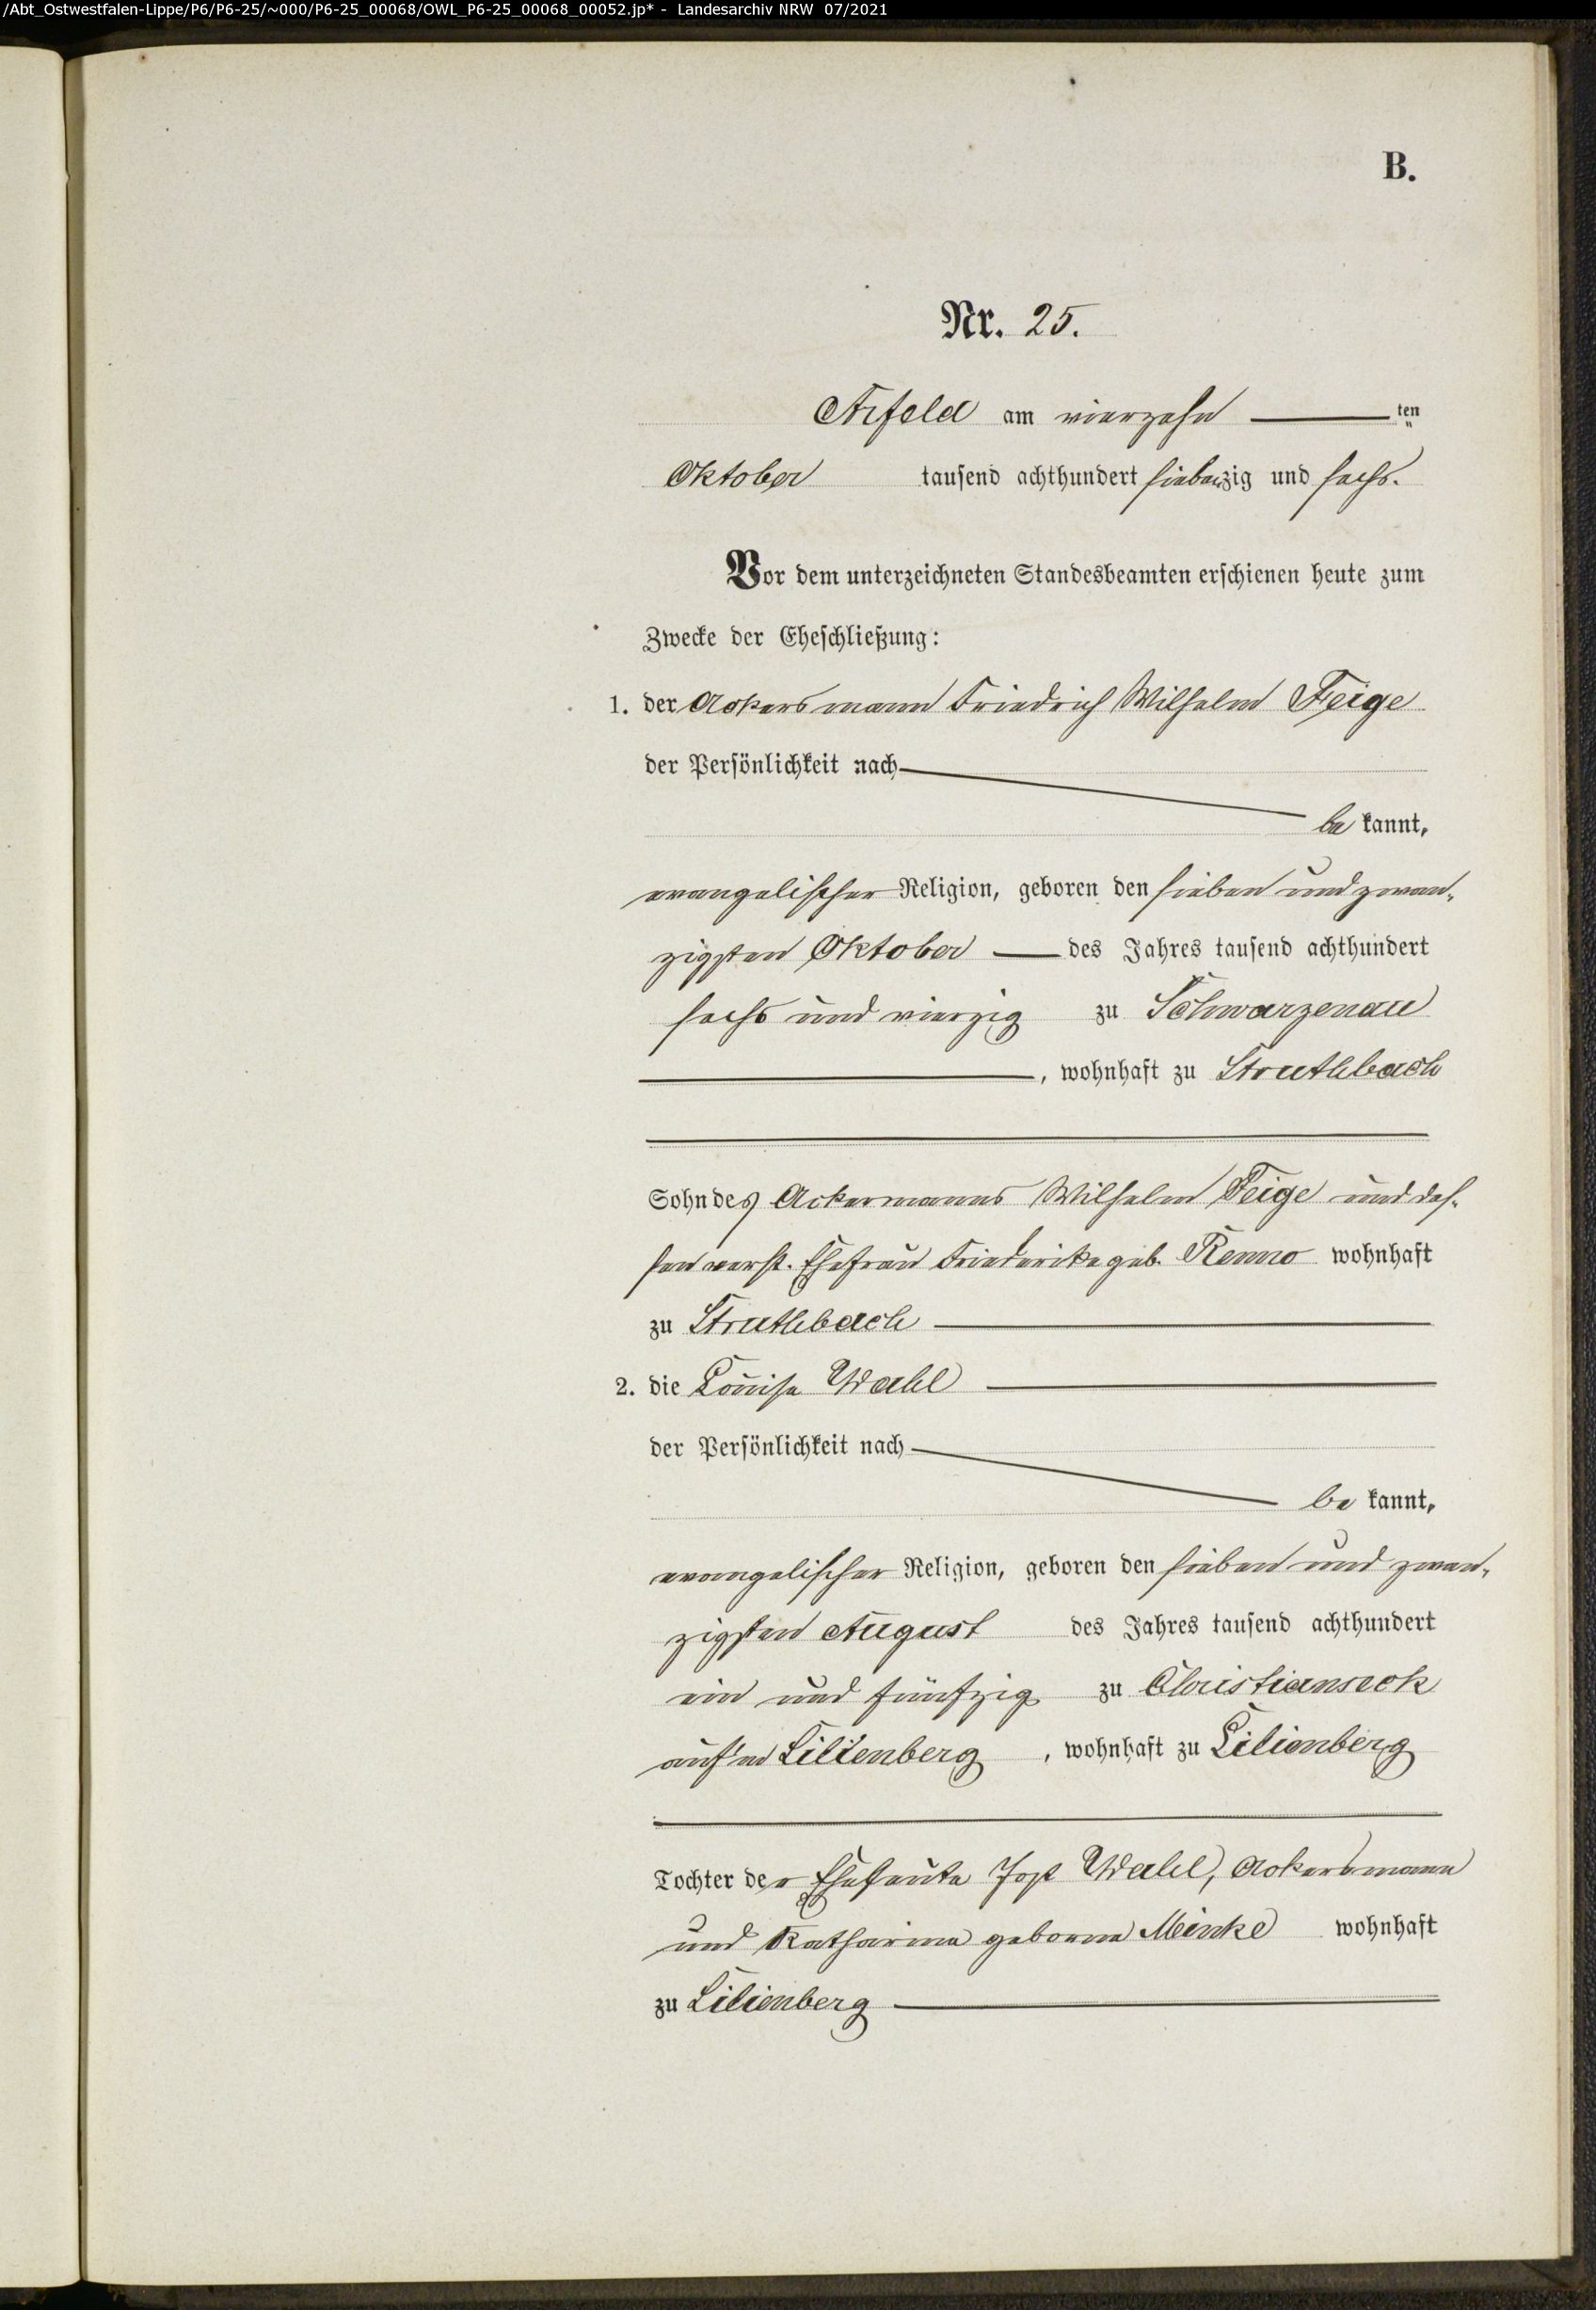 /Abt_Ostwestfalen-Lippe/P6/P6-25/~000/P6-25_00068/OWL_P6-25_00068_00052.jp* - Landesarchiv NRW 07/2021
B.
Nr. 25.
Arfeld am vierzehn ten
Oktober tausend achthundert siebenzig und sechs.
Vor dem unterzeichneten Standesbeamten erschienen heute zum
Zwecke der Eheschließung:
1. der Ackersmann Friedrich Wilhelm Feige
der Persönlichkeit nach
be kannt,
evangelischer Religion, geboren den sieben und zwan-
zigsten Oktober des Jahres tausend achthundert
sechs und vierzig zu Schwarzenau
, wohnhaft zu Struthbach
Sohn des Ackermanns Wilhelm Feige und des-
sen verst. Ehefrau Friederike geb. Renno wohnhaft
zu Struthbach
2. die Louise Wahl
der Persönlichkeit nach
be kannt,
evangelischer Religion, geboren den sieben und zwan-
zigsten August des Jahres tausend achthundert
ein und fünfzig zu Christianseck
auf'm Lilienberg , wohnhaft zu Lilienberg
Tochter der Eheleute Jost Wahl, Ackersmann
und Katharina geborne Meinke wohnhaft
zu Lilienberg